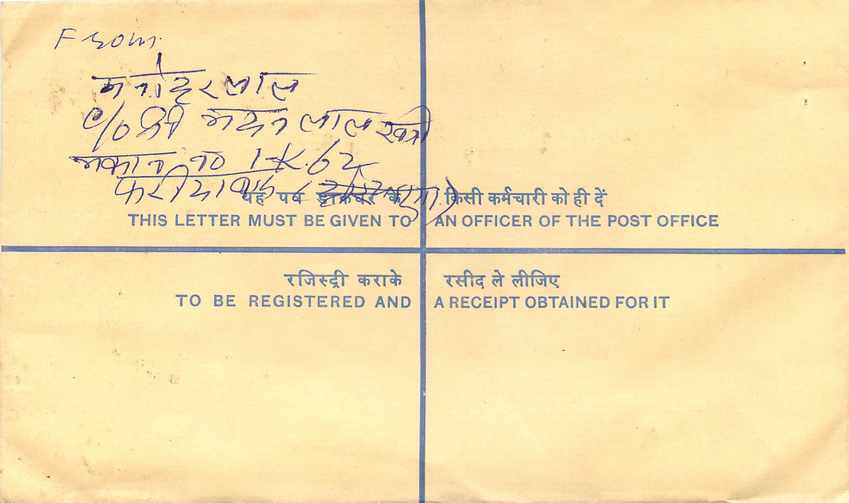 From
मनोहर लाल
c/o श्री मदन लाल खत्री
मकान no 1-K.62
यह पत्र डाकघर के किसी कर्मचारी को ही दें
THIS LETTER MUST BE GIVEN TO AN OFFICER OF THE POST OFFICE
रजिस्ट्री कराके रसीद ले लीजिए
TO BE REGISTERED AND A RECEIPT OBTAINED FOR IT